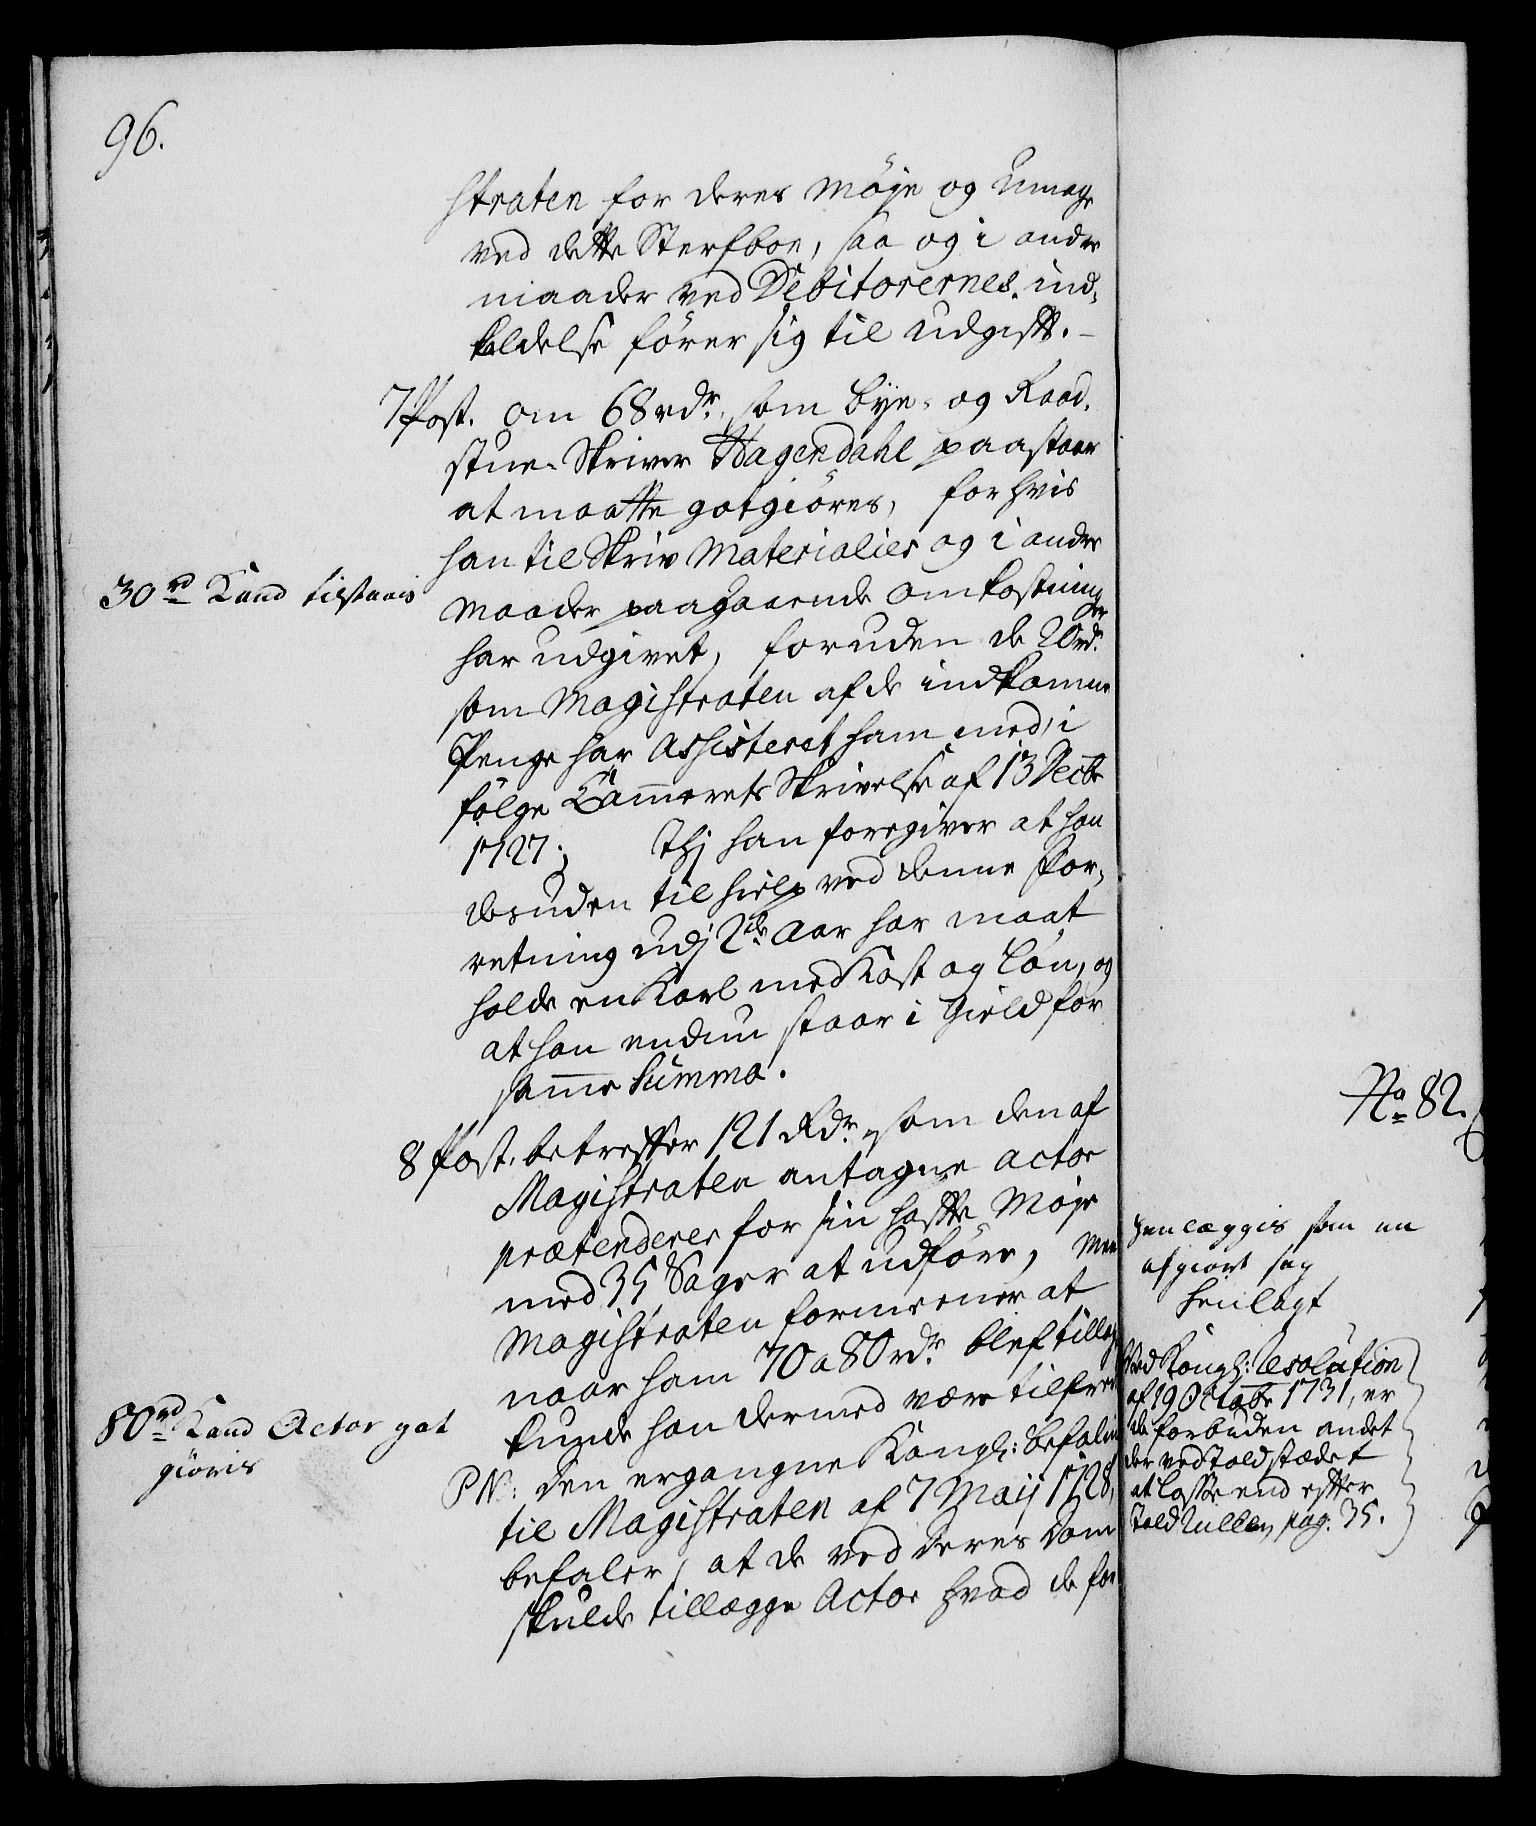 96.
straten for deres Møje og Umage
ved dette Sterfboe, saa og i andre
maader ved Debitorernes ind-
kaldelse fører sig til udgift. -
7 Post. om 68 rdr. som bye- og Raad-
stue-Skriver Hagendahl paastaar
at maatte gotgiöres, for hvis
han til Skriv Materialier og i andre
30 rd Kand tilstaais
Maader paagaaende omkostninger
har udgivet, foruden de 20 rdr.
som Magistraten af de indkomne
Penge har Assisteret ham med, i
følge Cammerets Skrivelse af 13 Decbr
1727; Thj han foregiver at han
desuden til hielp ved denne for-
retning udj 2de Aar har maat
holde en Karl med Kost og Løn, og
at han endnu staar i Gield for
samme Summa.
8 Post. betreffer 121 Rdr. som den af
Magistraten antagne actor
prætenderer for sin hafte Møje
med 35 Sager at udføre, Men
Magistraten formeener at
naar ham 70 a 80 rdr. blef tillagt
kunde han dermed være tilfreds
80 rd Kand Actor got
giøris
PN: den ergangne Kongl: befaling
til Magistraten af 7 Maij 1728,
befaler, at de ved deres Dom
skulde tillægge Actor hvad de for
No 82.
henlæggis som en
afgiort sag
henlagt
Ved Kongl: Resolution
af 19 Octobr 1731, er
de forbuden andet
der ved Toldstædet
at losse end efter
Told Rullen, pag. 35.